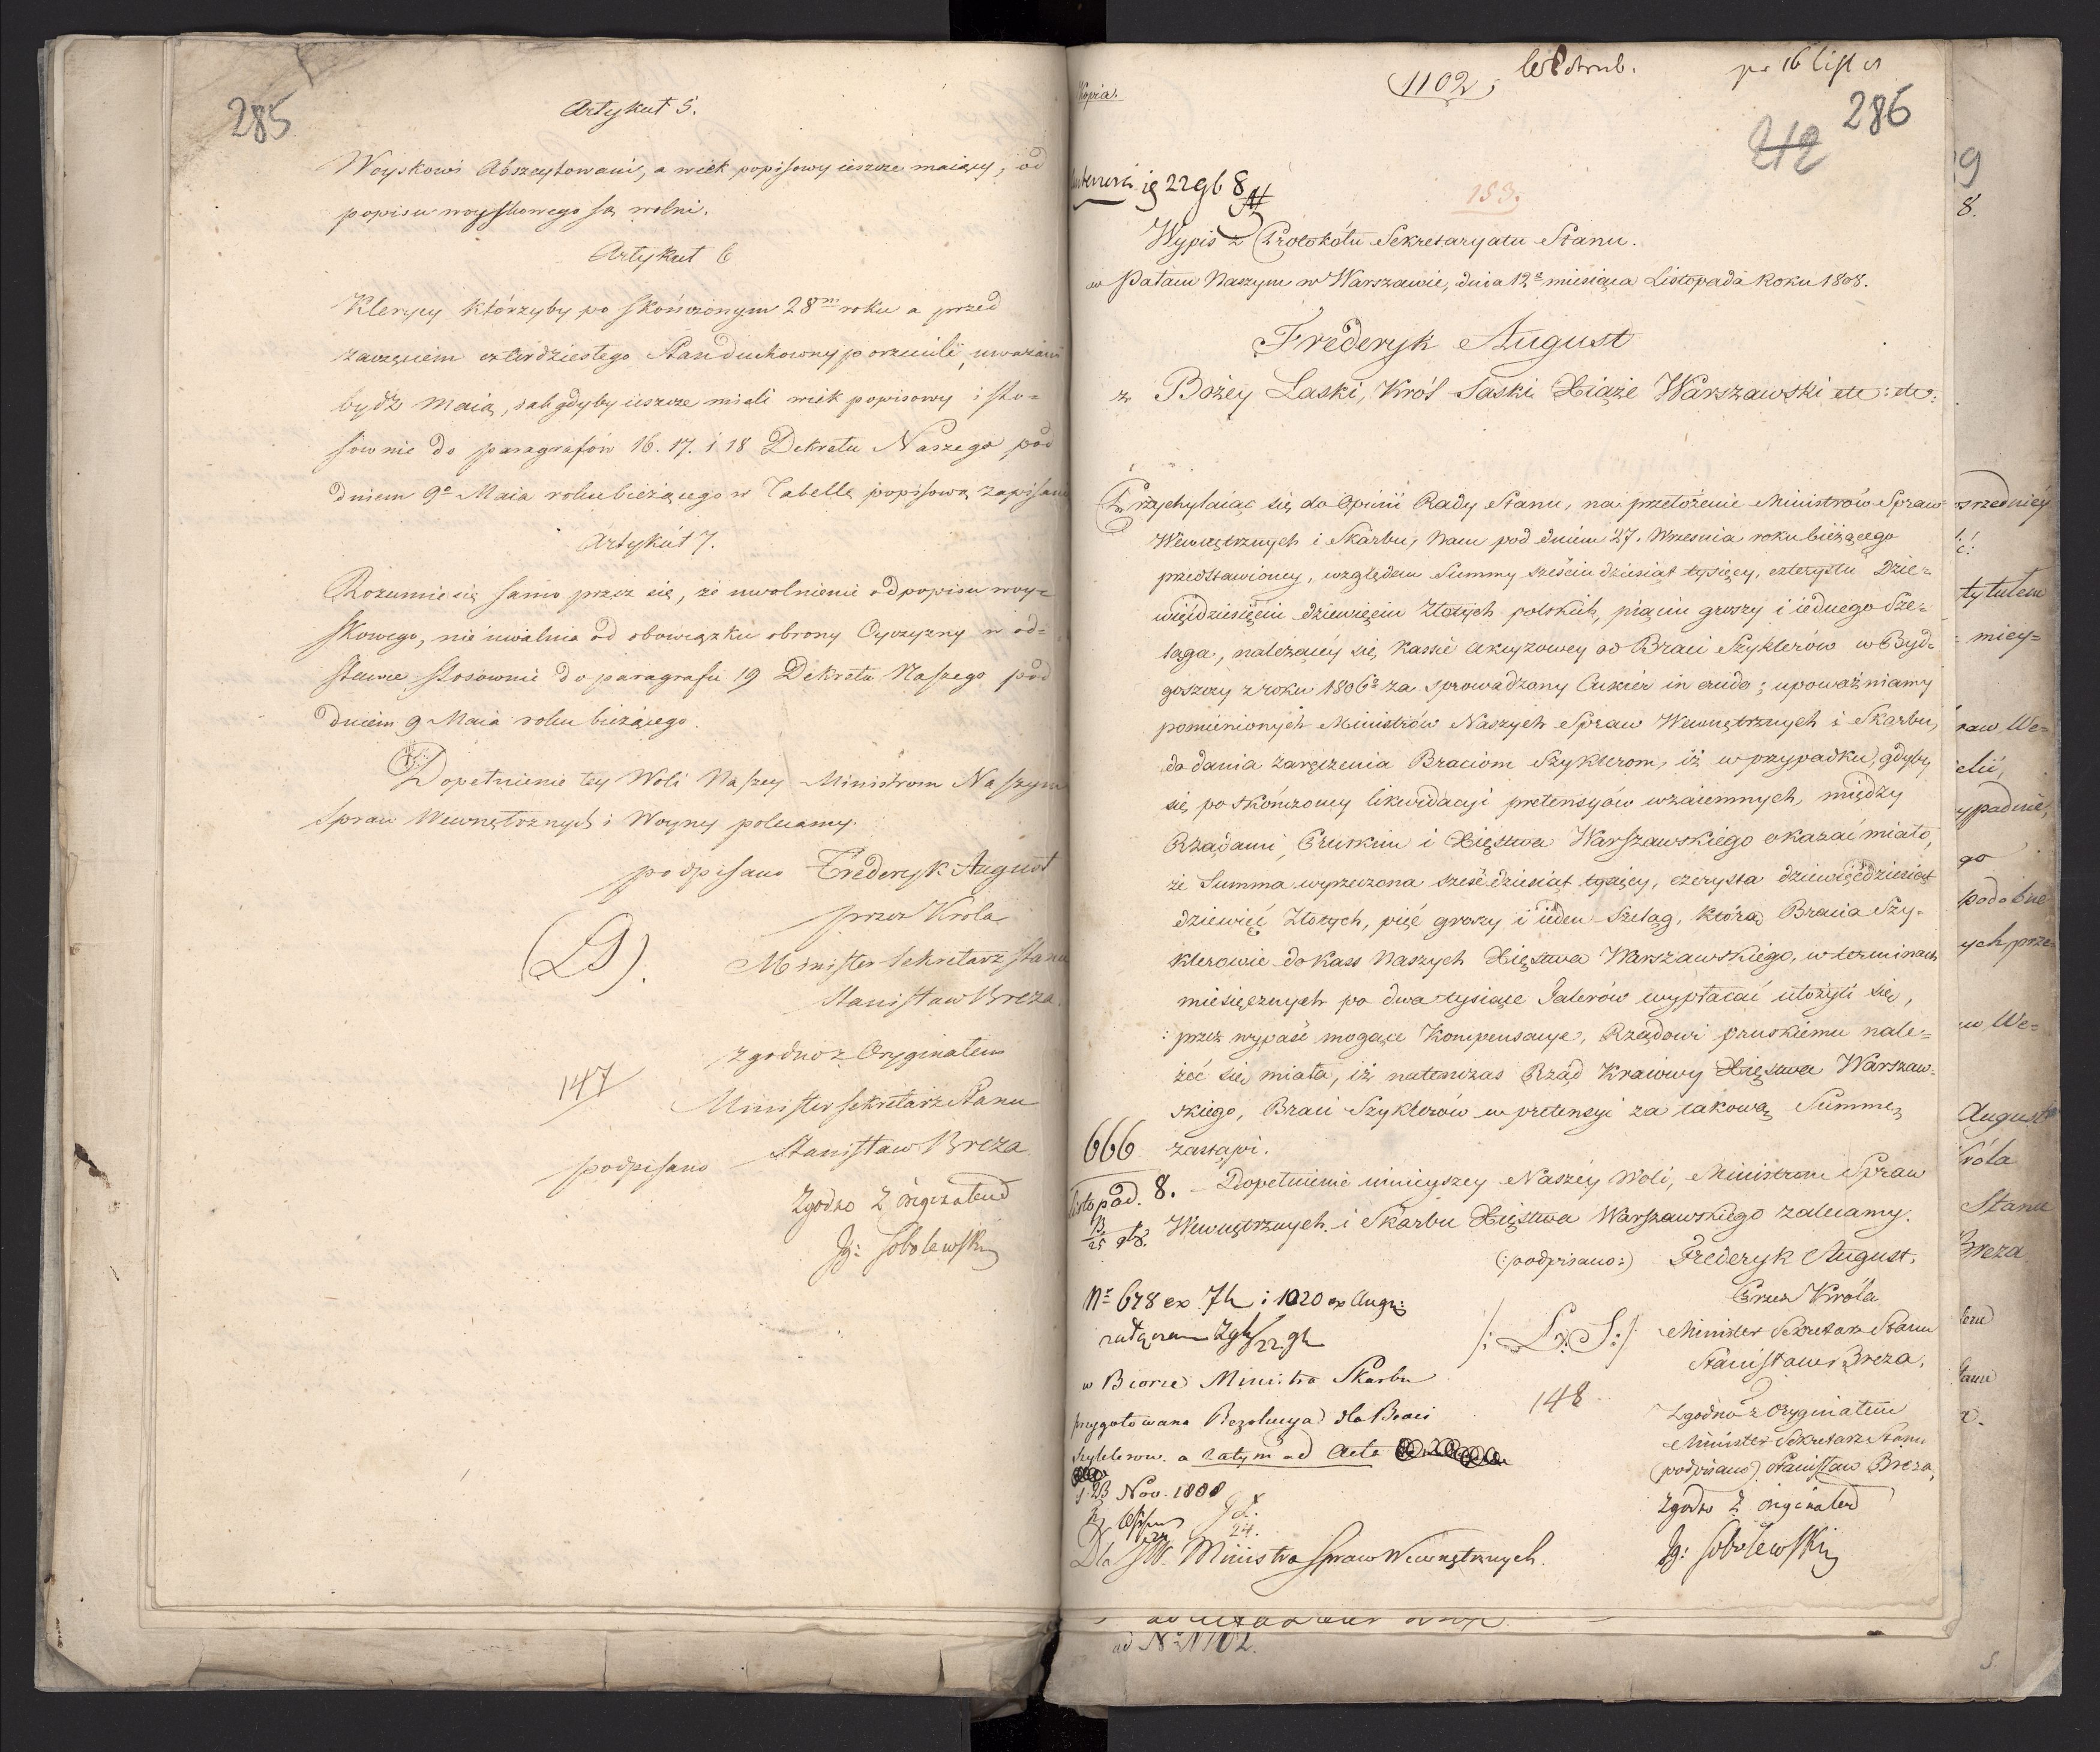 285
Artykuł 5.
Woyskowi Abszeytowani, a wiek popisowy ieszcze maiący, od
popisu woyskowego są wolni.
Artykuł 6
Klerycy którzyby po skończonym 28m roku a przed
zaczęciem czterdziestego Stan duchowny porzucili, uważani
bydź maią, iak gdyby ieszcze mieli wiek popisowy i sto=
sownie do paragrafów 16. 17. i 18 Dekretu Naszego pod
dniem 9o Maia roku bieżącego w Tabellę popisową zapisani
Artykuł 7.
Rozumie się samo przez się, że uwolnienie od popisu woy=
skowego, nie uwalnia od obowiązku obrony Oyczyzny w od=
stawie stosownie do paragrafu 19 Dekretu Naszego pod
dniem 9 Maia roku bieżącego.
Dopełnienie tey Woli Naszey Ministrom Naszym
Spraw Wewnętrznych i Woyny polecamy.
podpisano Frederyk August
przez Króla
(LS). Minister Sekretarz Stanu
Stanisław Breza.
zgodno z Oryginałem
147
Minister Sekretarz Stanu
podpisano Stanisław Breza
Zgodno z originałem
Ig: Sobolewski
Kopia.
1102
pr 16 List
286
212
153.
Wypis z Protokółu Sekretaryatu Stanu.
w Pałacu Naszym w Warszawie, dnia 12o miesiąca Listopada Roku 1808.
Frederyk August
z Bożey Łaski, Król Saski Xiąże Warszawski etc: etc:
Przychylaiąc się do Opinii Rady Stanu, na przełożenie Ministrów Spraw
Wewnętrznych i Skarbu, Nam pod dniem 27. Września roku bieżącego
przedstawioney, względem Summy sześciudziesiąt tysięcy, czterystu Dzie=
więdziesięciu dziewięciu Złotych polskich, pięciu groszy i iednego Sze=
ląga, należącéy się Kassie akcyzowey od Braci Szyklerów w Byd=
goszczy z roku 1806o za sprowadzony Cukier in crudo; upoważniamy
pomienionych Ministrów Naszych Spraw Wewnętrznych i Skarbu,
do dania zaręczenia Braciom Szyklerom, iż w przypadku, gdyby
się po skończoney likwidacyi pretensyów wzaiemnych, między
Rządami, Pruskim i Xięstwa Warszawskiego okazać miało,
że Summa wyrzeczona sześćdziesiąt tysięcy, czterysta dziewięćdziesiąt
dziewięć Złotych, pięć groszy i ieden Szeląg, którą Bracia Szy=
klerowie do Kass Naszych Xięstwa Warszawskiego, w terminach
miesięcznych po dwa tysiące Talerów wypłacać ułożyli się,
przez wypaść mogące Kompensacye, Rządowi pruskiemu nale=
żeć się miała, iż natenczas Rząd Kraiowy Xięstwa Warszaw=
skiego, Braci Szyklerów w pretensyi za takową Summę
zastąpi.
666
Listopad. 8.
Dopełnienie ninieyszey Naszéy Woli, Ministrom Spraw
Wewnętrznych i Skarbu Xięstwa Warszawskiego zalecamy.
(:podpisano:) Frederyk August.
Przez Króla
/: L. S. :/ Minister Sekretarz Stanu
Stanisław Breza.
Nr 678 ex 7b i 1020 ex Aug:
w Biorze Ministra Skarbu
przygotowana Rezolucya dla Braci
Szyklerów. a zatym ad Acta
23 Nov. 1808
148
Zgodno z Oryginałem
Minister Sekretarz Stanu
(podpisano) Stanisław Breza,
Zgodno z originałem
Ig: Sobolewski
24.
Dla JW. Ministra Spraw Wewnętrznych.
ad Nr 1102.
8.
tytułem
miey=
raw We=
go
podobne
ych prze=
w We=
August
Króla
Stanu
Breza